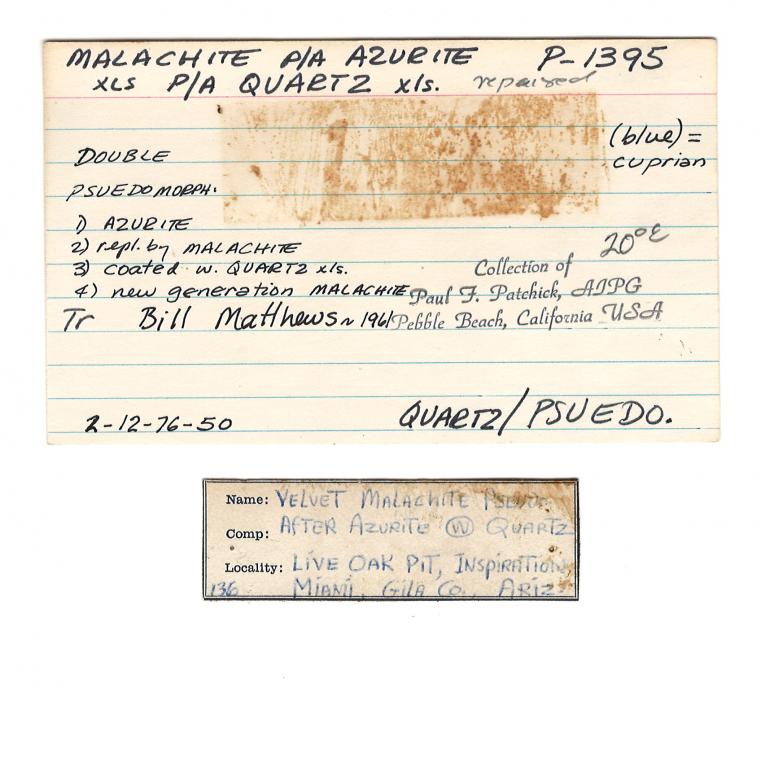 MALACHITE P/A AZURITE P-1395
xLS P/A QUARTZ xls. repaired
(blue) =
DOUBLE cuprian
PSUEDOMORPH:
1) AZURITE
2) repl. by MALACHITE
3) coated w. QUARTZ xls.
4) new generation MALACHITE
Collection of
Paul F. Patchick, AIPG
Pebble Beach, California USA
Tr Bill Matthews ~ 1961
2-12-76-50 QUARTZ/PSUEDO.
Name: VELVET MALACHITE PSEUDO.
Comp: AFTER AZURITE W QUARTZ
Locality: LIVE OAK PIT, INSPIRATION,
136 MIAMI, GILA CO., ARIZ.